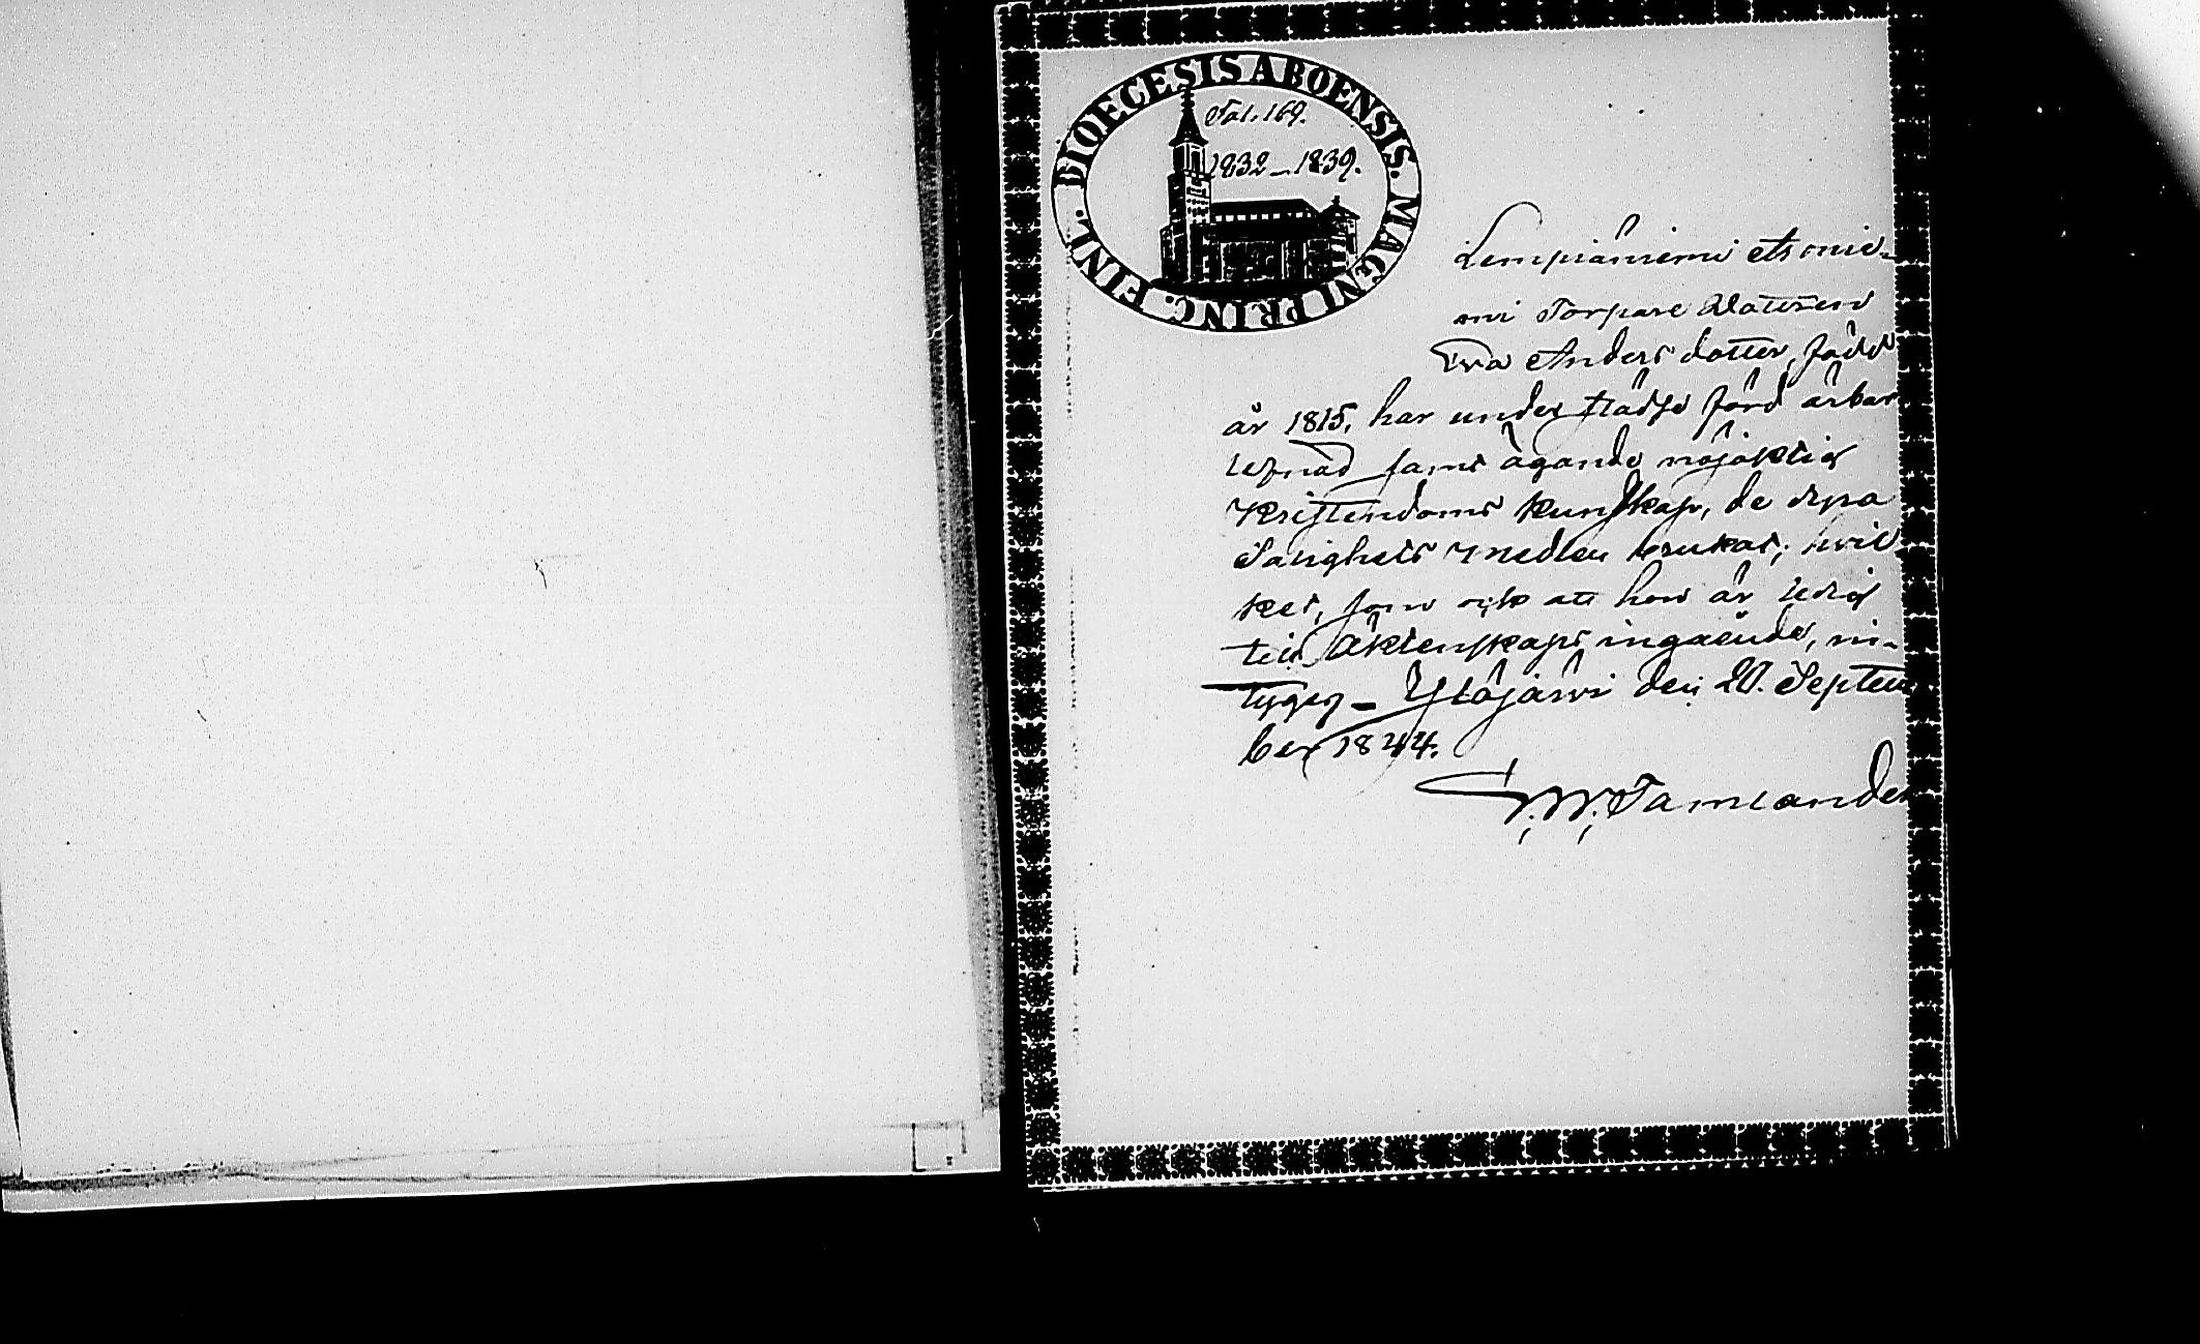 DIOECESIS ABOENSIS. MAGNI PRINC. FINL.
Fol. 169.
1832–1839.
Lempiäniemi etsonie-
mi Torpare Dotteren
Eva Anders dotter, född
år 1815, har under städse förd ärbar
lefnad samt ägande nöjaktig
Kristendoms kunskap, de dyra
Salighets medlen brukat; hvil
ket, som ock att hon är ledig
till Äktenskaps ingående, in-
tygeg – Ylöjärvi den 20. Septem
ber 1844.
Tamlander